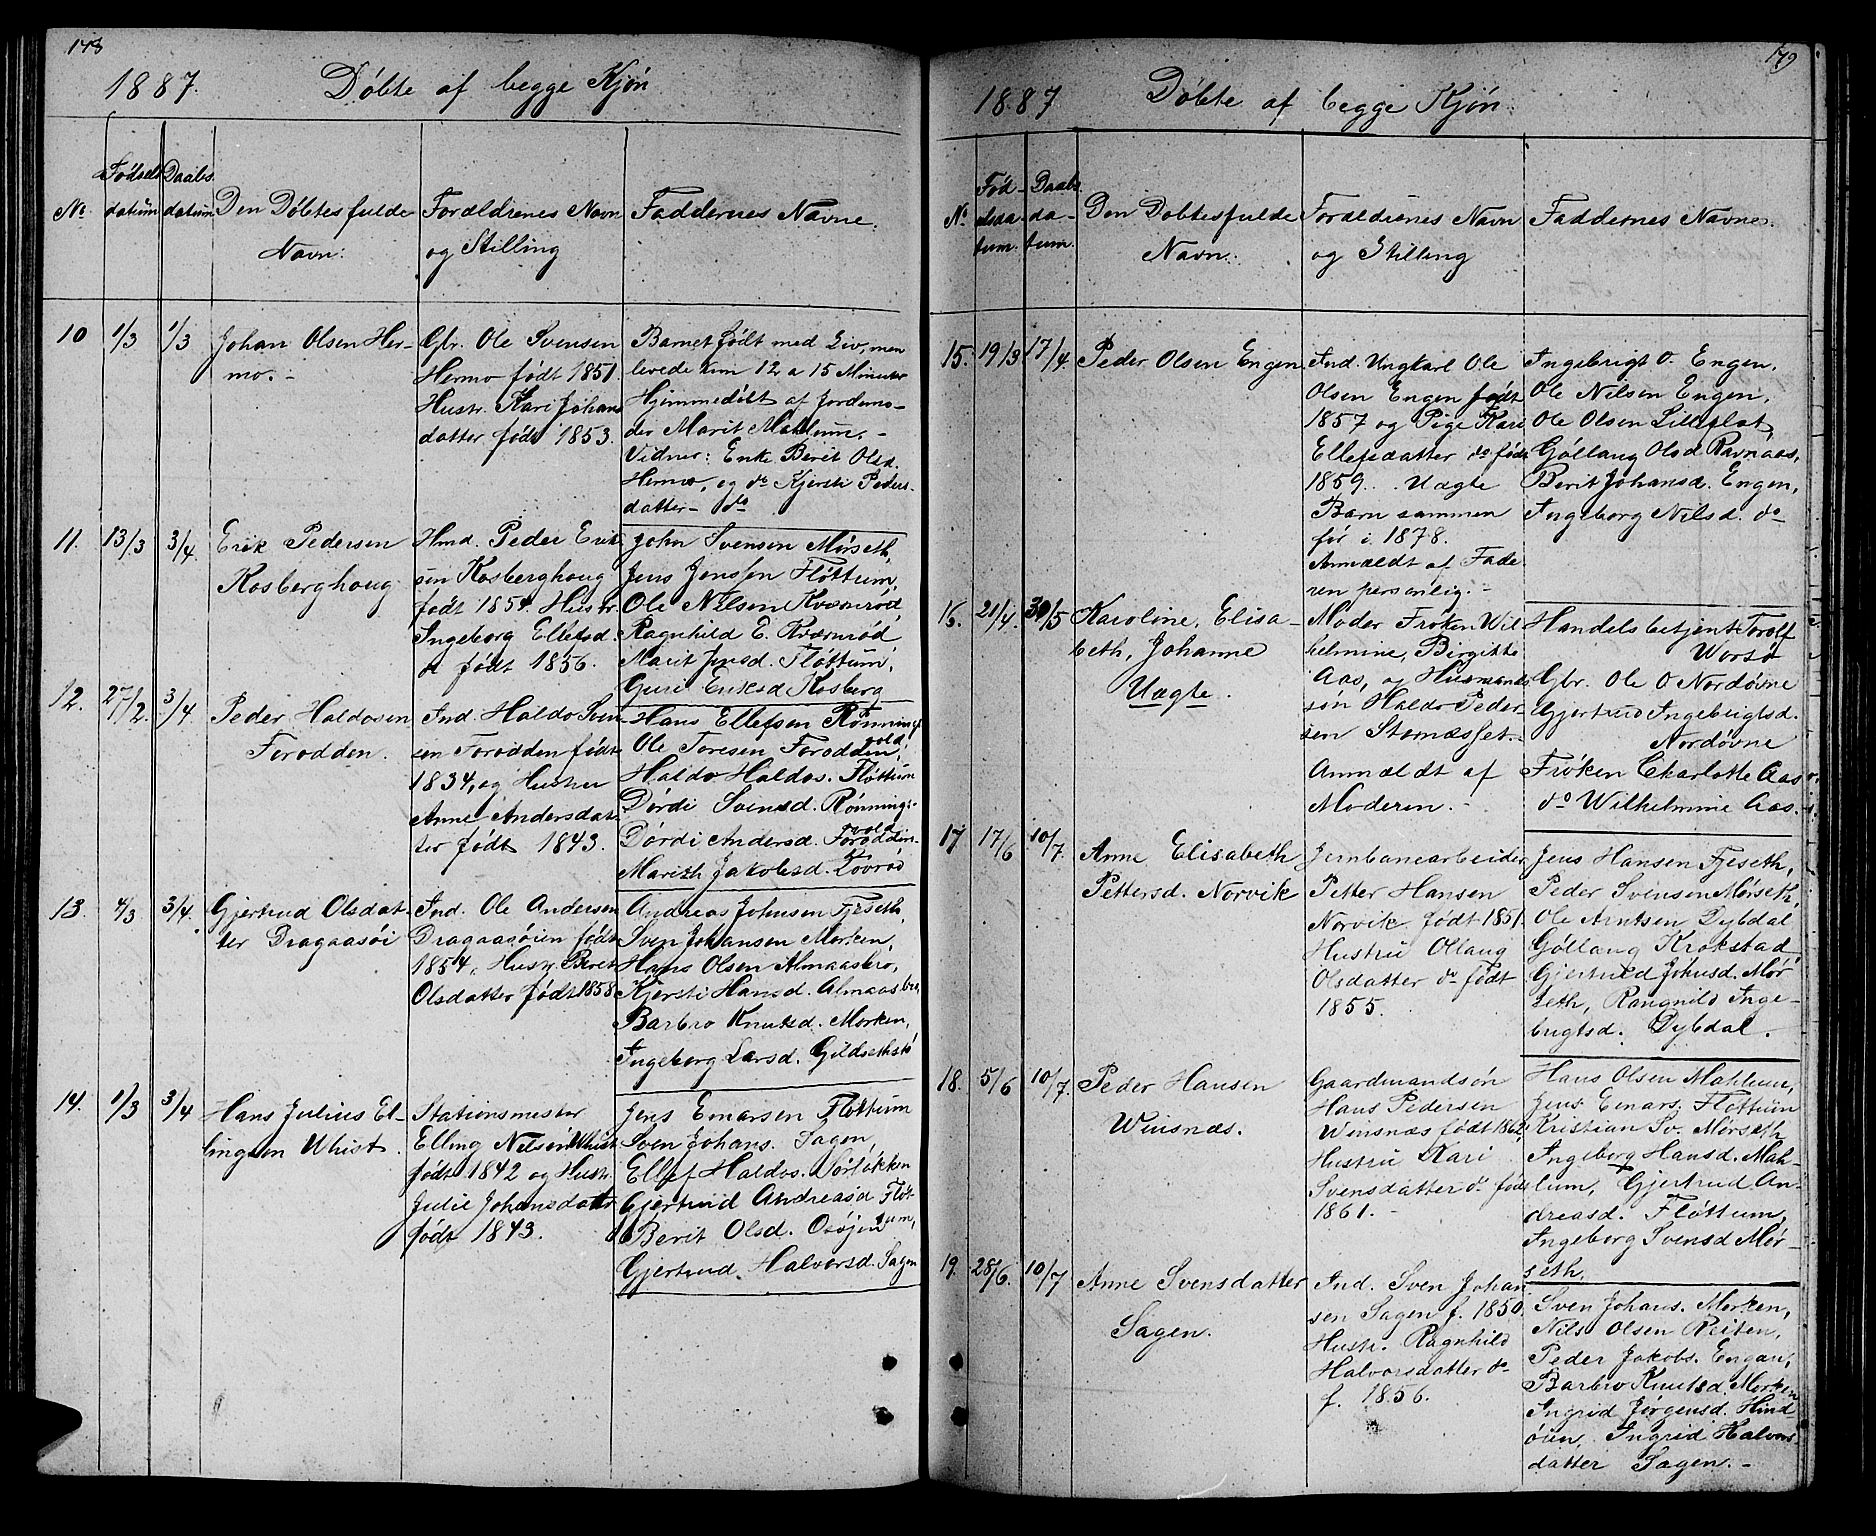 178
1887. Døbte af begge Kjøn
No.
Fødsels
datum
Daabs
datum
Den Døbtes fulde
Navn:
Forældrenes Navn
og Stilling
Faddernes Navne.
10 1/3 1/3
Johan Olsen Her-
mo. -
Gbr. Ole Svensen
Hermo født 1851.
Hustr. Kari Johans
datter født 1853.
Barnet født med Liv, men
levede kun 12 a 15 Minuter
Hjemmedøbt af Jordmo-
der Marit Mahlum. -
Vidner: Enke Berit Olsd.
Hermo, og do Kjersti Peders-
datter - do
11. 13/3 3/4.
Erik Pedersen
Kosberghoug
Hmd. Peder Erik
sen Kosberghoug
født 1854. Hustr.
Ingeborg Ellefsd.
født 1856.
John Svensen Mørseth,
Jens Jenssen Fløttum,
Ole Nilsen Kværnrød,
Ragnhild E. Kværnrød
Marit Jensd. Fløttum,
Guri Eriksd Kosberg
12. 27/2. 3/4.
Peder Haldosen
Forodden.
Ind. Haldo Sven
sen Forodden født
1834, og Hustru
Anne Andersdat
ter født 1843.
Hans Ellefsen Rønnings
vold,
Ole Toresen Forodden,
Haldo Haldos. Fløttum
Dørdi Svensd. Rønnings-
vold
Dørdi Andersd. Forodden
Marith Jakobsd.
13. 4/3 3/4.
Gjertrud Olsdat-
ter Dragaasøi
Ind. Ole Andersen
Dragaasøien født
1854, Hustr. Beret
Olsdatter født 1858
Andreas Johnsen Fjeseth,
Sven Johansen Morken,
Hans Olsen Almaasbro,
Kjersti Hansd. Almaasbro,
Barbro Knutsd. Morken,
Ingeborg Larsd. Gildsethstø
14. 1/3 3/4
Hans Julius El-
lingsen Whist.
Stationsmester
Elling Nilsen Whist
født 1842 og Hustr.
Julie Johansdatter
født 1843.
Jens Emarsen Fløttum
Sven Johans. Sagen,
Ellef Haldos. Sørløkken
Gjertrud Andreasd Fløt-
tum,
Berit Olsd. Osøjen
Gjertrud Halvorsd. Sagen
179
1887 Døbte af begge Kjøn.
No.
Fød-
selsda-
tum.
Daabs
da-
tum.
Den Døbtes fulde
Navn.
Forældrenes Navn
og Stilling
Faddernes Navne.
15. 19/3 17/4.
Peder Olsen Engen
Ind. Ungkarl Ole
Olsen Engen født
1857 og Pige Kari
Ellefsdatter do født
1859. Uægte
Barn sammen
før i 1878.
Anmældt af Fade
ren personlig. -
Ingebrigt O. Engen,
Ole Nilsen Engen,
Ole Olsen Lilleflat,
Gøllaug Olsd Ravnaas,
Berit Johansd. Engen,
Ingeborg Nilsd. do
16. 21/4. 30/5
Karoline, Elisa-
beth, Johanne
Uægte.
Moder Frøken Wil
helmine, Birgitte
Aas, og Husmands
søn Haldo Peder-
sen Stornæsset. -
Anmældt af
Moderen. -
Handelsbetjent Torolf
Worsø
Gbr. Ole O Nordøvne
Gjertrud Ingebrigtsd.
Nordøvne
Frøken Charlotte Aas
do Wilhelmine Aas.
17 17/6 10/7.
Anne Elisabeth
Pettersd. Norvik
Jernbanearbeider
Petter Hansen
Norvik født 1851.
Hustru Ollaug
Olsdatter do født
1855.
Jens Hansen Fjeseth,
Peder Svensen Mørseth,
Ole Arntsen Dybdal
Gøllaug Krokstad
Gjertrud Johnsd. Mør
seth, Rangnild Inge-
brigtsd. Dybdal.
18. 5/6 10/7.
Peder Hansen
Winsnæs.
Gaardmandsøn
Hans Pedersen
Winsnæs født 1862,
Hustru Kari
Svensdatter do født
1861. -
Hans Olsen Mahlum,
Jens Emars. Fløttum
Kristian Sv. Mørseth
Ingeborg Hansd. Mah-
lum, Gjertrud An-
dreasd. Fløttum,
Ingeborg Svensd Mør-
seth.
19. 28/6. 10/7
Anne Svensdatter
Sagen.
Ind. Sven Johan
sen Sagen f. 1850.
Hustr. Ragnhild
Halvorsdatter do
f. 1856.
Sven Johans. Morken,
Nils Olsen Reiten,
Peder Jakobs. Engan,
Barbro Knutsd. Morken
Ingrid Jørgensd. Hind-
øien, Ingrid Halvors-
datter Sagen. -